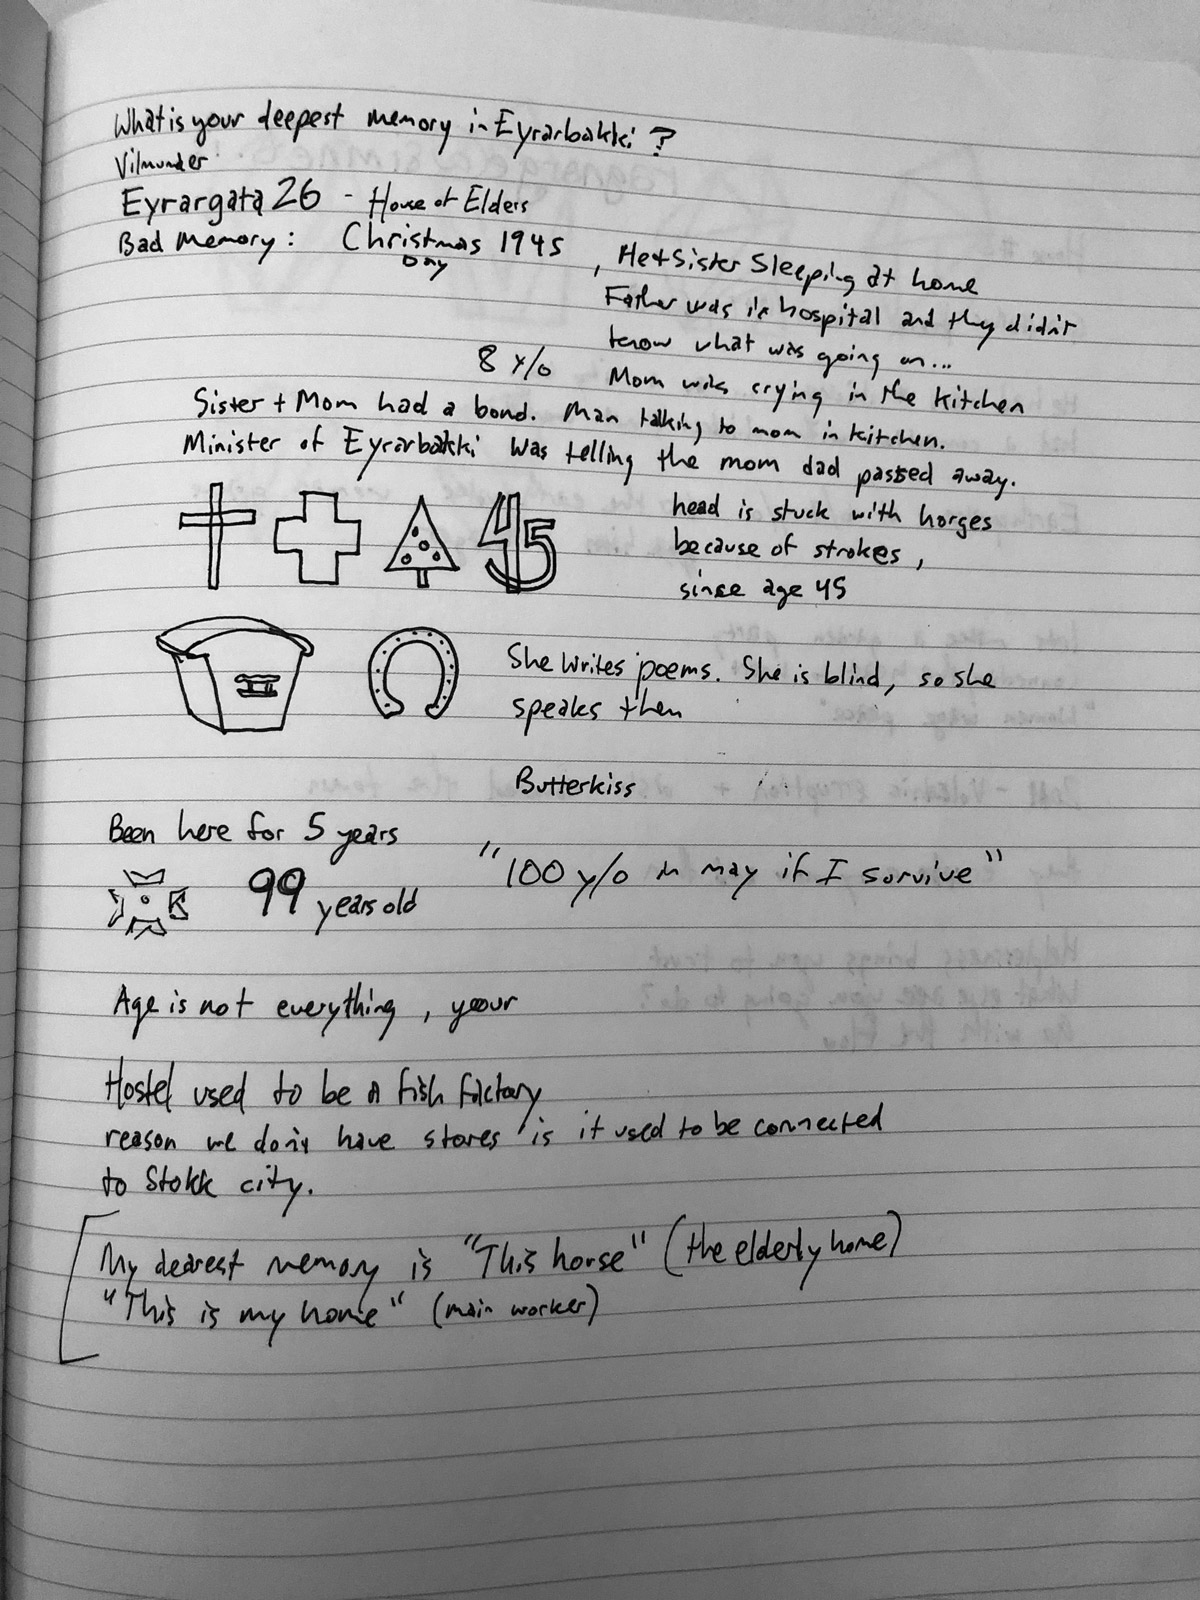 What is your deepest memory in Eyrarbakki?
Vilmunder
Eyrargata 26 - House of Elders
Bad Memory: Christmas 1945, He + Sister Sleeping at home
Day
Father was in hospital and they didn't
know what was going on...
8 y/o Mom was crying in the kitchen
Sister + Mom had a bond. Man talking to mom in kitchen.
Minister of Eyrarbakki was telling the mom dad passed away.
45
head is stuck with horses
because of strokes,
since age 45
She writes poems. She is blind, so she
speaks them
Butterkiss
Been here for 5 years
99 years old "100 y/o in may if I survive"
Age is not everything, your
Hostel used to be a fish factory
reason we don't have stores is it used to be connected
to Stokk city.
My dearest memory is "This horse" (the elderly home)
"This is my home" (main worker)